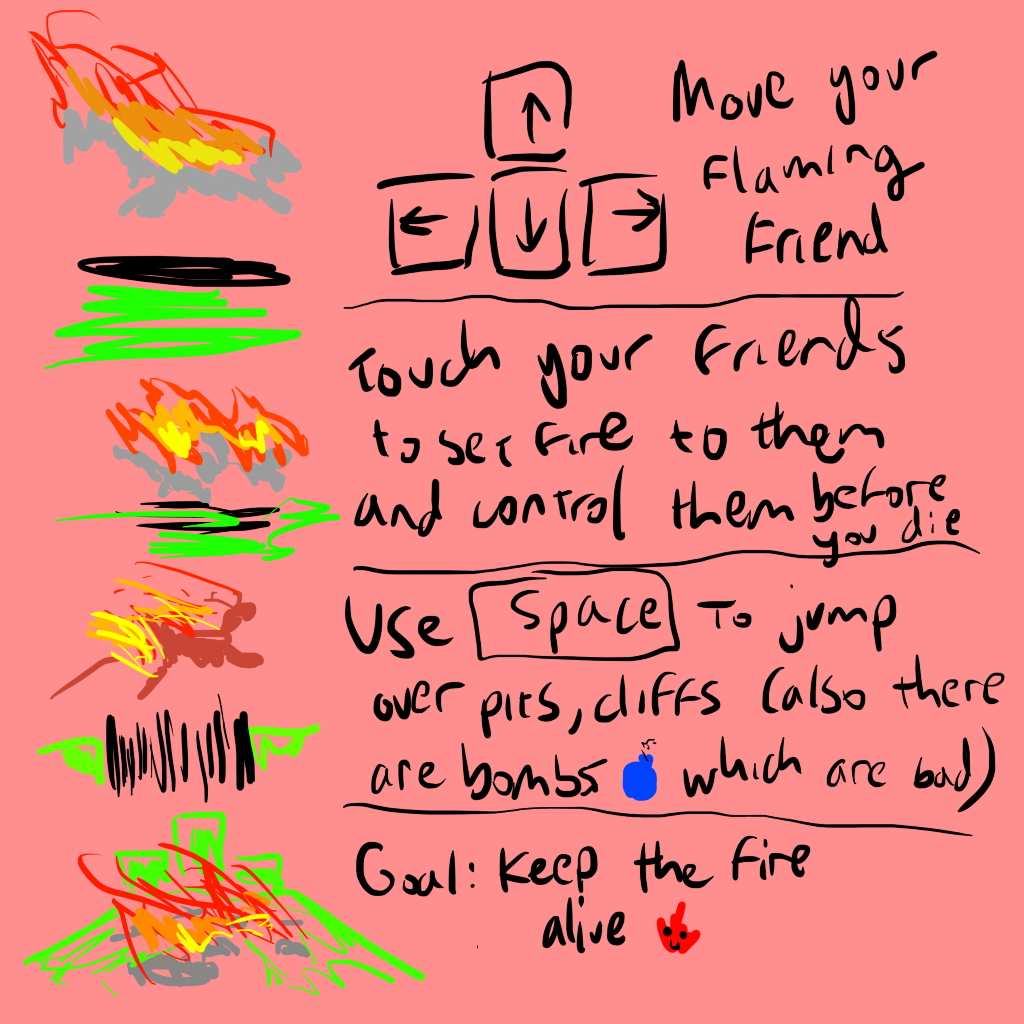 Move your
Flaming
Friend
Touch your Friends
to set Fire to them
and control them before
you die
Use Space To jump
over pits, cliffs (also there
are bombs which are bad)
Goal: Keep the Fire
alive